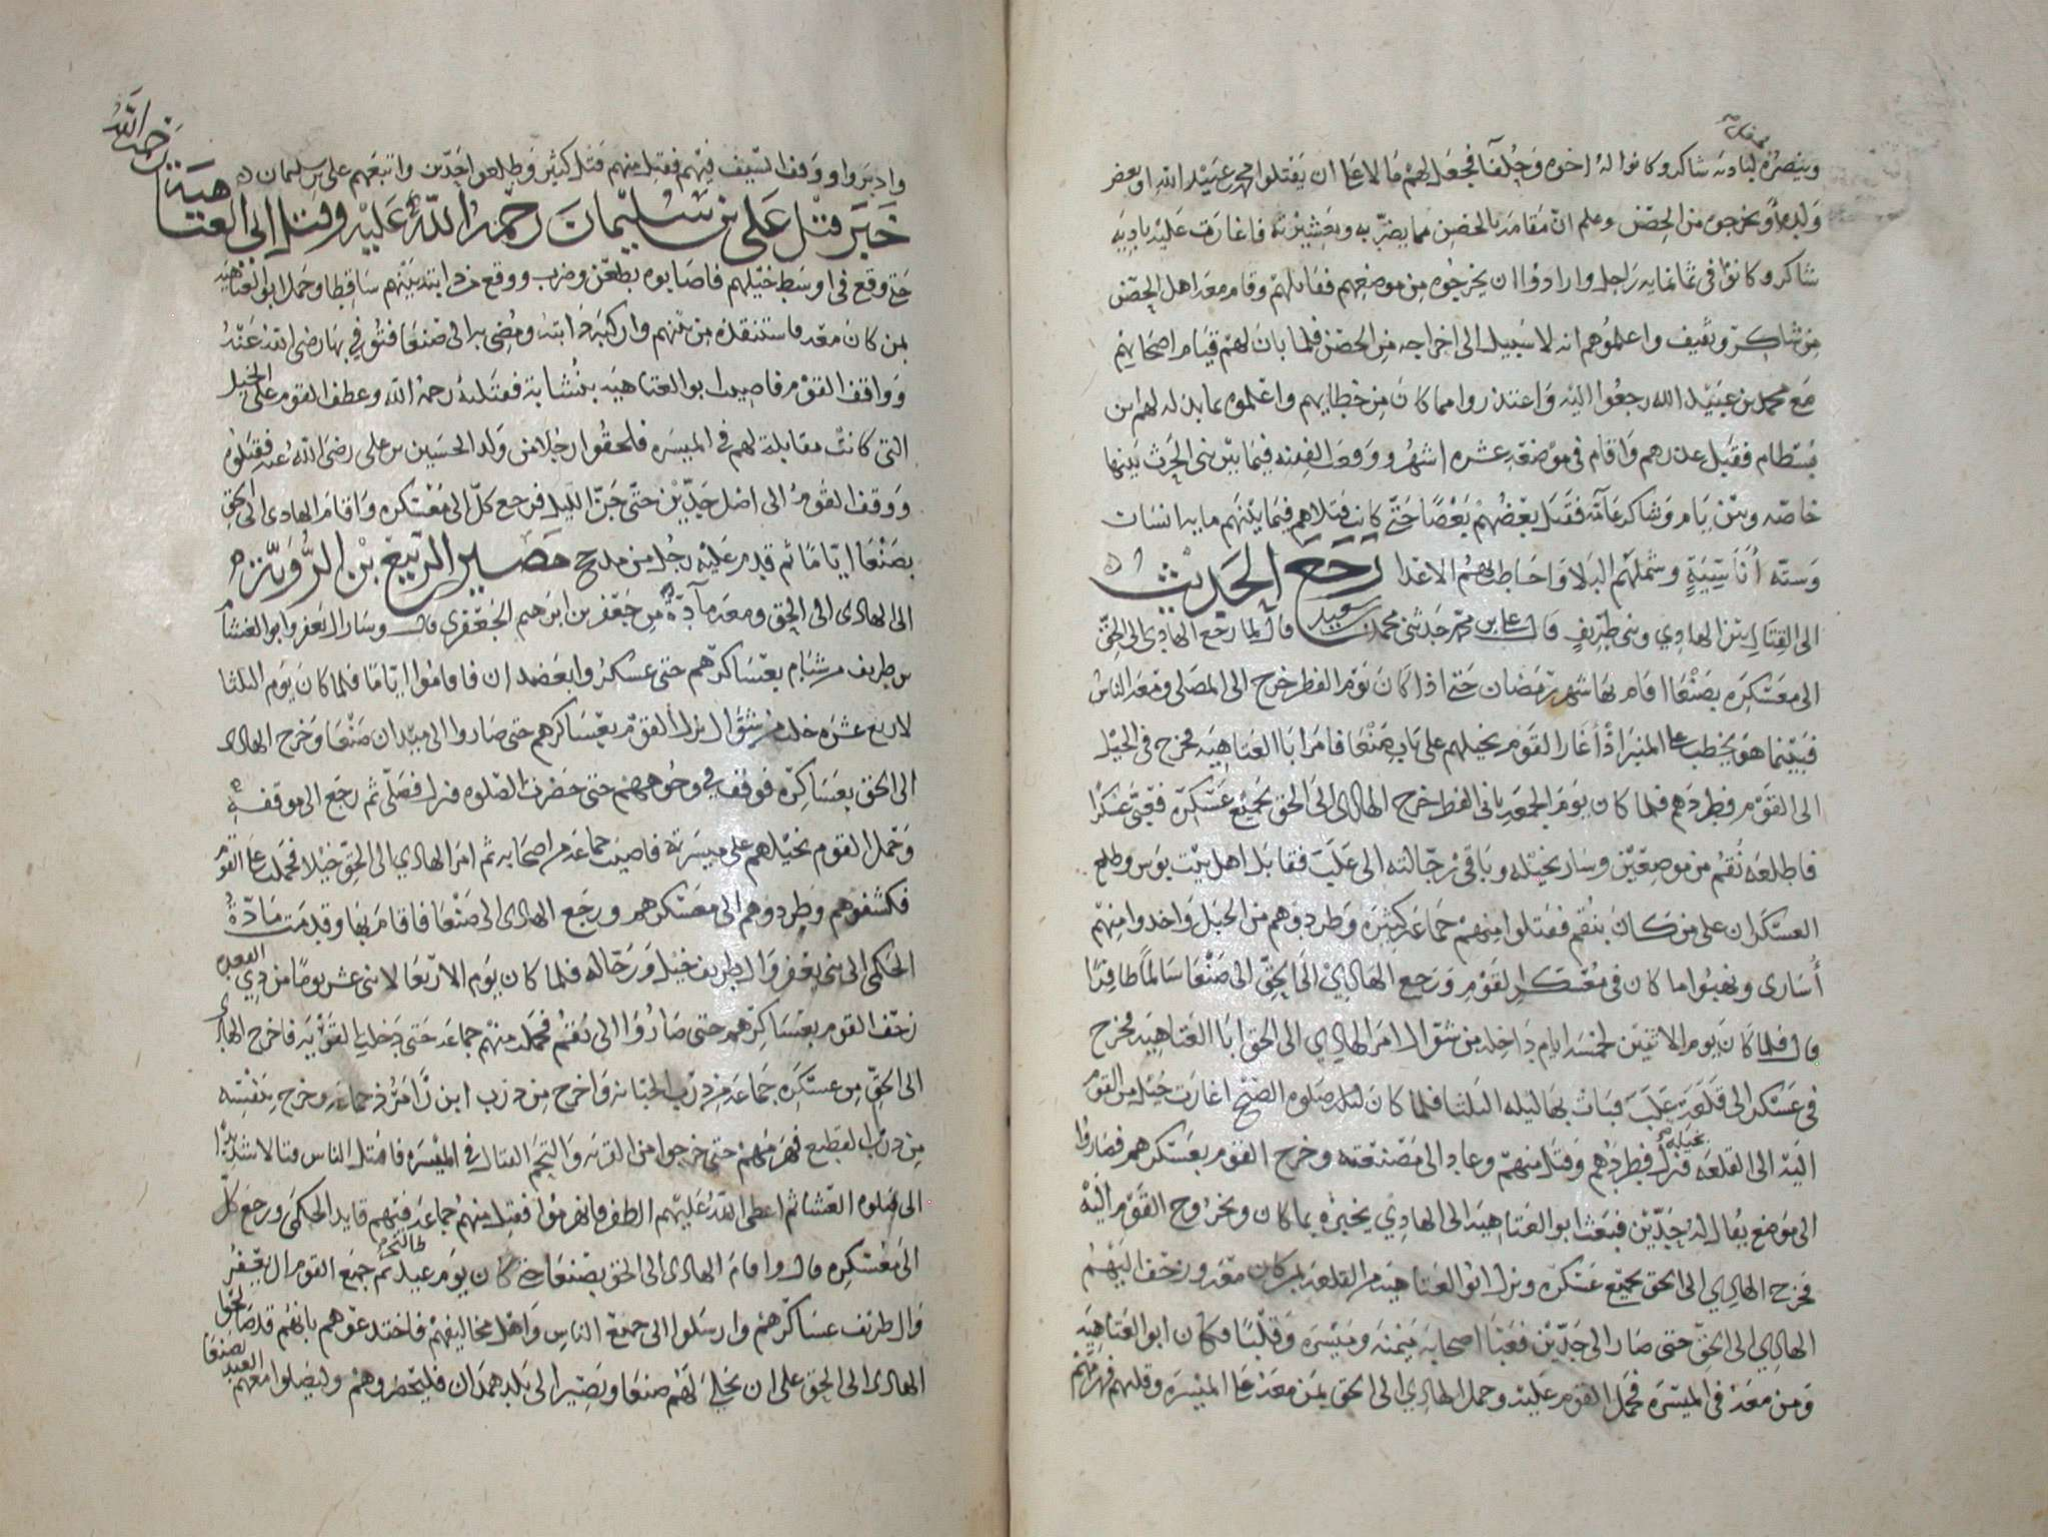 وينصره لبادية شاكر وكانوا له اخوه وحلفآ فجعل لهم مالا على ان يقتلوا محمد بن عبيد الله او بعض
ولده او يخرجوه من الحصن وعلم ان مقامه بالحصن مما يضر به وبعشيرته فاغارت عليه باديه
شاكر وكانوا فى ثمانمايه راجل وارادوا ان يخرجوه من موضعهم فقاتلهم وقام معه اهل الحصن
من شاكر وثقيف واعلموهم انه لا سبيل الى اخراجه من الحصن فلما بان لهم قيام اصحابهم
مع محمد بن عبيد الله رجعوا اليه واعتذروا مما كان من خطايهم واعلموه بما بذل لهم ابن
بسطام فقبل عذرهم واقام فى موضعه عشره اشهر ووقعت الفتنه فيما بين بنى الحرث بينها
خاصه وبين يام وشاكر عآمه فقتل بعضهم بعضا حتى كانت قتلاهم فيما بينهم مايه انسان
وسته أناسيّة وشملهم البلا واحاط بهم الاعدا رجع الحديث
الى القتال بين الهادي وبنى طريف قال على بن محمد حدثنى محمد بن سعيد قال لما رجع الهادي الى الحق
الى معسكره بصنعا اقام بها شهر رمضان حتى اذا كان يوم الفطر خرج الى المصلى ومعه الناس
فبينما هو يخطب على المنبر اذ أغار القوم بخيلهم على باب صنعا فامر ابا العتاهيه فخرج فى الخيل
الى القوم فطردهم فلما كان يوم الجمعه ثانى الفطر خرج الهادى الى الحق بجميع عسكره فعبى عسكرا
فاطلعه نقم من موضعين وسار بخيله وباقى رجّالته الى علب فقابل اهل بيت بوس وطلع
العسكران على من كان بنقم فقتلوا منهم جماعه كثيره وطردوهم من الجبل واخذوا منهم
أسارى ونهبوا ما كان فى معسكر القوم ورجع الهادي الى الحق الى صنعا سالماً ظافرا
قال فلما كان يوم الاثنين لخمسه ايام داخله من شوال امر الهادي الى الحق ابا العتاهيه فخرج
فى عسكر الى قلعة علب فبات بها ليله الثلثا فلما كان ليله صلوه الصبح اغارت خيل من القوم
اليه الى القلعه فنزل بخيله فطردهم وقتل منهم وعاد الى مصنعته وخرج القوم بعسكرهم فصاروا
الى موضع يقال له جدّين فبعث ابو العتاهيه الى الهادي يخبره بما كان وبخروج القوم اليه
فخرج الهادي الى الحق بجميع عسكره ونزل ابو العتاهيه من القلعه بمن كان معه وزحف اليهم
الهادي الى الحق حتى صار الى جدّين فعبا اصحابه ميمنه وميسره وقلبا فكان ابو العتاهيه
ومن معه فى الميسره فحمل القوم عليه وحمل الهادي الى الحق بمن معه على الميسره وقلبهم فهزمهم
وادبروا ووقف السيف فيهم فقتل منهم قتل كثير وطلعوا جدّين واتبعهم على بن سليمان
خبر قتل على بن سليمان رحمة الله عليه وقتل ابى العتاهية رضى الله
حتى وقع فى اوسط خيلهم فاصابوه بطعن وضرب ووقع من دابته بينهم ساقطا وحمل ابو العتاهيه
بمن كان معه فاستنقذه من بينهم واركبه دابته ومضى به الى صنعا فتوفي بها رضى الله عنه
وواقف القوم فاصيب ابو العتاهيه بنشابة فقتلته رحمه الله وعطف القوم على الخيل
التى كانت مقابلة لهم فى الميسره فلحقوا رجلا من ولد الحسين بن على رضى الله عنه فقتلوه
ووقف القوم الى اصل جدّين حتى جنّ الليل فرجع كلّ الى معسكره واقام الهادى الى الحق
بصنعا ايّامًا ثم قدم عليه رجل من مذحج مصير الربيع بن الرويّة
الى الهادى الى الحق ومعه مآدّة من جعفر بن ابرهيم الجعفري قال وسار ال يعفر وابو الغشام
بن طريف من شبام بعساكرهم حتى عسكروا بعضدان فاقاموا ايّامًا فلما كان يوم الثلثا
لاربع عشره خلت من شوال نزل القوم بعساكرهم حتى صاروا الى ميدان صنعا وخرج الهادى
الى الحق بعساكره فوقف في وجوههم حتى حضرت الصلوه فنزل فصلّى ثم رجع الى موقفه
وحمل القوم بخيلهم على ميسرته فاصيب جماعه من اصحابه ثم امر الهادي الى الحق خيلا فحملت على القوم
فكشفوهم وطردوهم الى معسكرهم ورجع الهادى الى صنعا فاقام بها وقدمت مادّة
الحكمى الى بنى يعفر وال طريف خيل ورجاله فلما كان يوم الاربعا لاثنى عشر يومًا من ذي القعده
زحف القوم بعساكرهم حتى صاروا الى نقم فحمل منهم جماعه حتى دخلوا القريه فاخرج الهادى
الى الحق من عسكره جماعه من درب الجبانه واخرج من درب ابن زامرذ جماعه وخرج بنفسه
من درب القطيع فهزمهم حتى خرجوا من القريه والتجم القتال فى الميسره فاقتتل الناس قتالا شديدًا
الى صلوه العشا ثم اعطى الله عليهم الظفر فانهزموا فقتل منهم جماعه فيهم قايد الحكمى ورجع كلّ
الى معسكره قال واقام الهادى الى الحق بصنعا حتى كان يوم عيد النحر ثم جمع القوم ال يعفر
وال طريف عساكرهم وارسلوا الى جميع الناس واهل مخاليفهم فاختدعوهم بانهم قد صالحوا
الهادى الى الحق على ان يخلى لهم صنعا ويصير الى بلد همدان فليحضروهم وليصلوا معهم العيد بصنعا